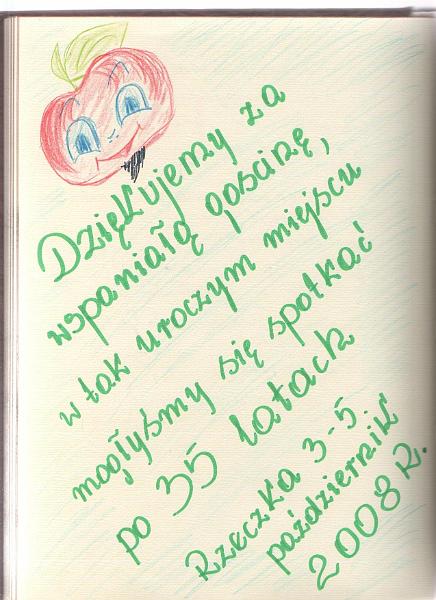 Dziękujemy za
wspaniałą gościnę,
w tak uroczym miejscu
mogłyśmy się spotkać
po 35 latach
Rzeczka 3-5
październik
2008 r.